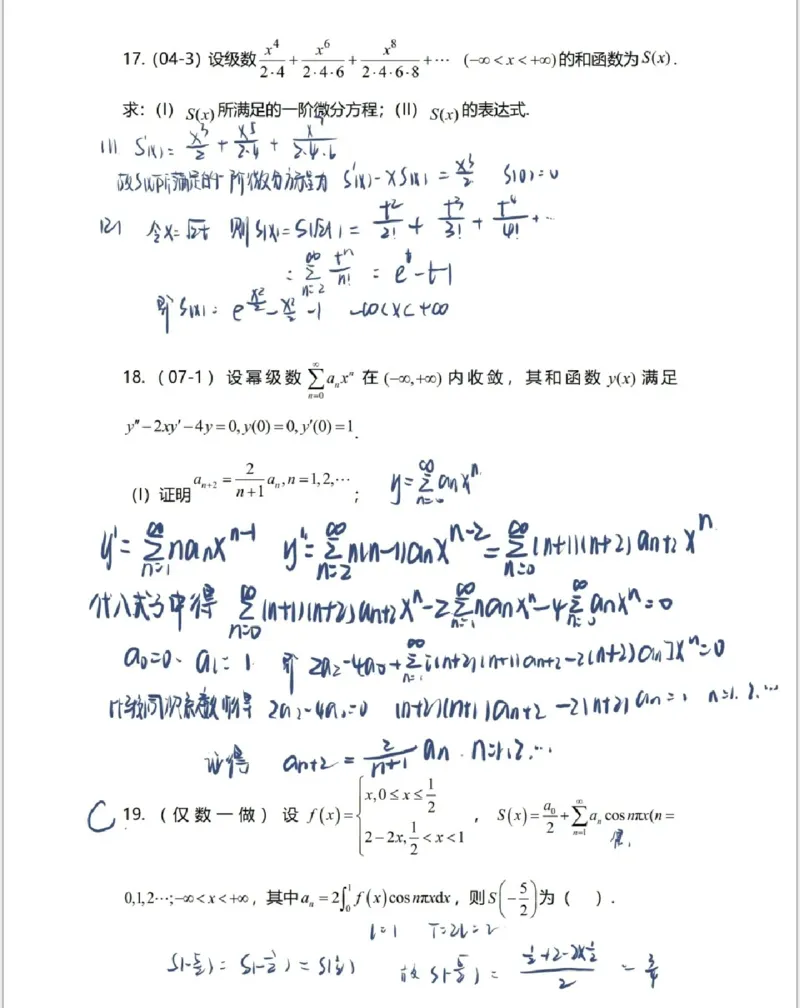 17. (04-3) 设级数 x⁴/(2·4) + x⁶/(2·4·6) + x⁸/(2·4·6·8) + ⋯ (−∞<x<+∞)的和函数为S(x).
求：(Ⅰ) S(x)所满足的一阶微分方程；(Ⅱ) S(x)的表达式.
(1) S'(x) = x³/2 + x⁵/(2·4) + x⁷/(2·4·6)
故S(x)所满足的一阶微分方程为 S'(x) − xS(x) = x³/2 S(0)=0
(2) 令x=√2t 则S(x)=S(√2t) = t²/2! + t³/3! + t⁴/4! + ⋯
= ∑_{n=2}^{∞} tⁿ/n! = e^t − t − 1
即 S(x) = e^{x²/2} − x²/2 − 1 −∞<x<+∞
18. (07-1) 设幂级数 ∑_{n=0}^{∞} aₙxⁿ 在 (−∞,+∞) 内收敛，其和函数 y(x) 满足
y″−2xy′−4y=0, y(0)=0, y′(0)=1.
(Ⅰ) 证明 aₙ₊₂ = 2/(n+1) aₙ, n=1,2,⋯； y=∑_{n=0}^{∞} aₙxⁿ
y'=∑_{n=1}^{∞} naₙxⁿ⁻¹ y''=∑_{n=2}^{∞} n(n−1)aₙxⁿ⁻² = ∑_{n=0}^{∞} (n+1)(n+2)aₙ₊₂xⁿ
代入式子中得 ∑_{n=0}^{∞} (n+1)(n+2)aₙ₊₂xⁿ − 2∑_{n=1}^{∞} naₙxⁿ − 4∑_{n=0}^{∞} aₙxⁿ = 0
a₀=0、a₁=1 即 2a₂−4a₀+∑_{n=1}^{∞} [(n+2)(n+1)aₙ₊₂−2(n+2)aₙ]xⁿ=0
比较同次系数可得 2a₂−4a₀=0 (n+2)(n+1)aₙ₊₂ −2(n+2)aₙ = 0 n=1.2.⋯
证得 aₙ₊₂ = 2/(n+1) aₙ. n=1.2.⋯
C 19. (仅数一做) 设 f(x)={x, 0≤x≤1/2; 2−2x, 1/2<x<1 ， S(x)=a₀/2+∑_{n=1}^{∞} aₙcos nπx(n=
偶.
0,1,2⋯;−∞<x<+∞, 其中aₙ=2∫₀¹ f(x)cos nπxdx, 则S(−5/2)为( ).
l=1 T=2l=2
S(−5/2) = S(−1/2) = S(1/2) 故 S(−5/2) = (1/2+2−2×1/2)/2 = 3/4